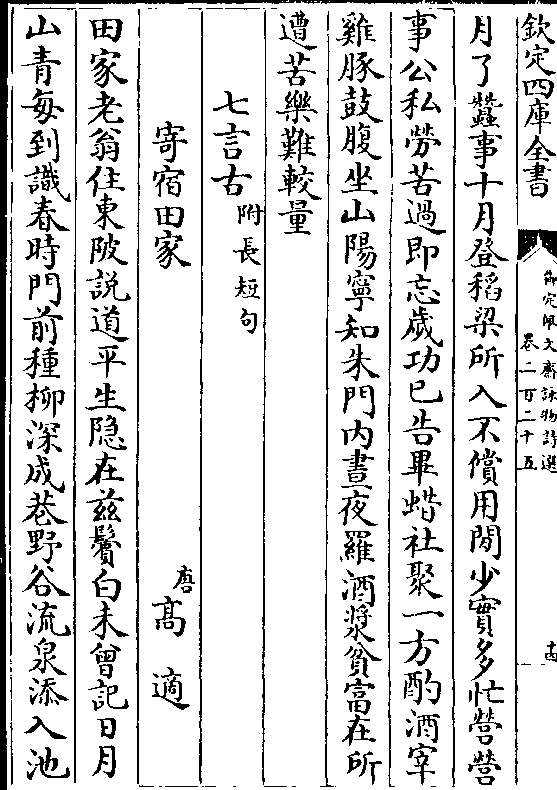 欽定四庫全書
御定佩文齋詠物詩選
卷二百二十五
十四
月了蠶事十月登稻梁所入不償用閒少實多忙營營
事公私勞苦過即忘歲功已告畢蜡社聚一方酌酒宰
雞豚鼓腹坐山陽寧知朱門内晝夜羅酒漿貧富在所
遭苦樂難較量
七言古附長短句
寄宿田家
唐高適
田家老翁住東陂説道平生隐在兹鬢白未曾記日月
山青每到識春時門前種柳深成巷野谷流泉添入池